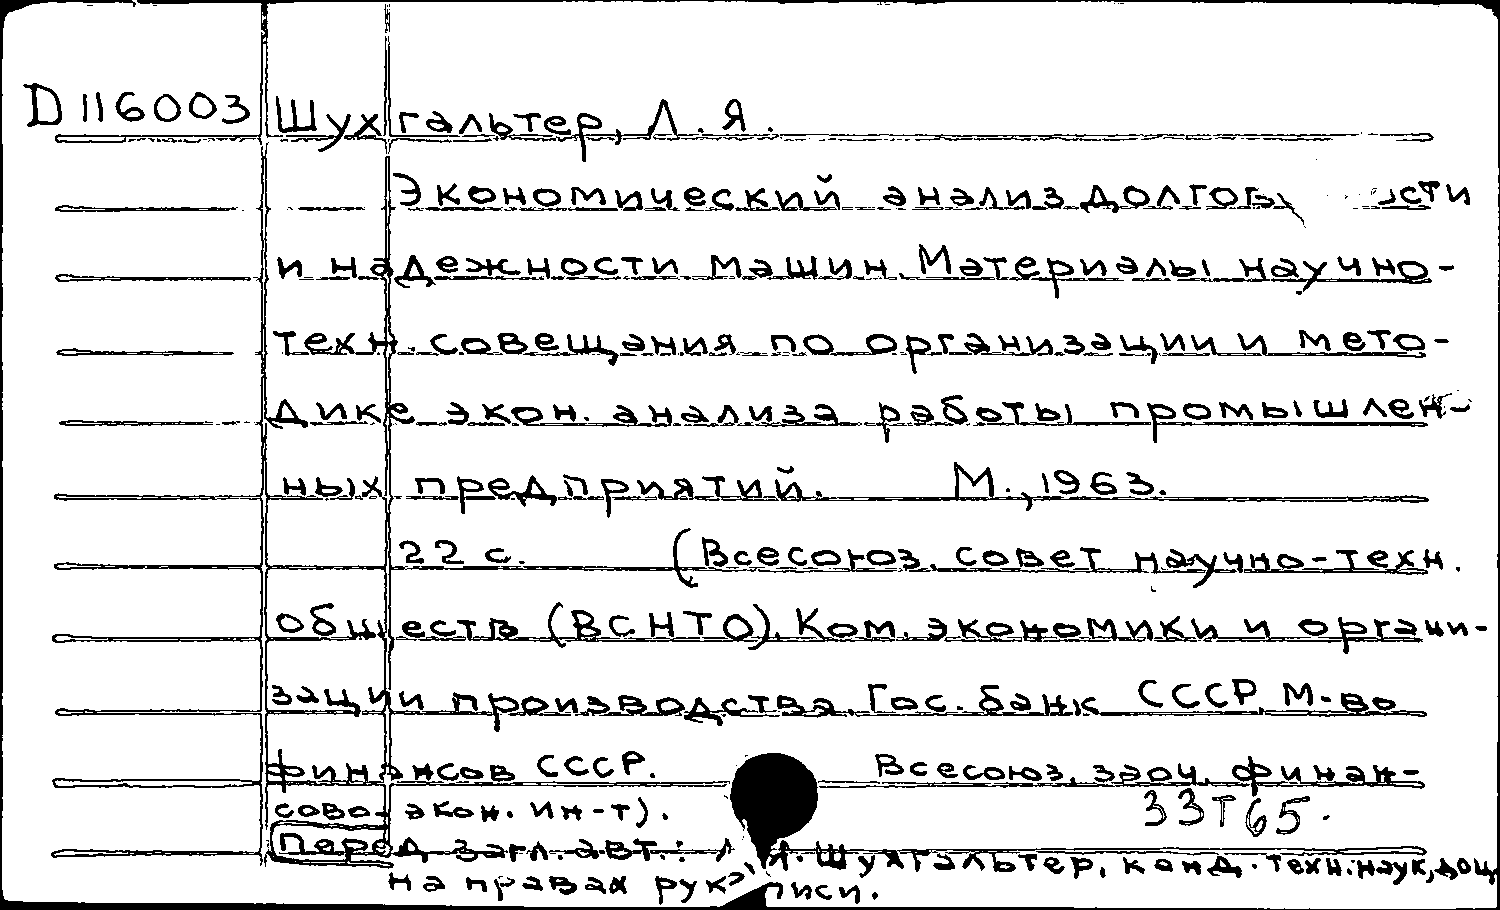 D 116003 Шухгальтер, Л. Я.
Экономический анализ
и надежности машин. Материалы научно-
техн. совещания по организации и мето-
дике экон. анализа работы промышлен-
ных предприятий. М., 1963.
22 с. (Всесоюз. совет научно-техн.
обществ (ВСНТО). Ком. экономики и органи-
зации производства. Гос. банк СССР. М-во
финансов СССР. Всесоюз. заоч. финан-
сово-экон. ин-т).
33Т65.
Перед загл. авт.: Л. Я. Шухгальтер, канд. техн. наук, доц.
на правах рукописи.